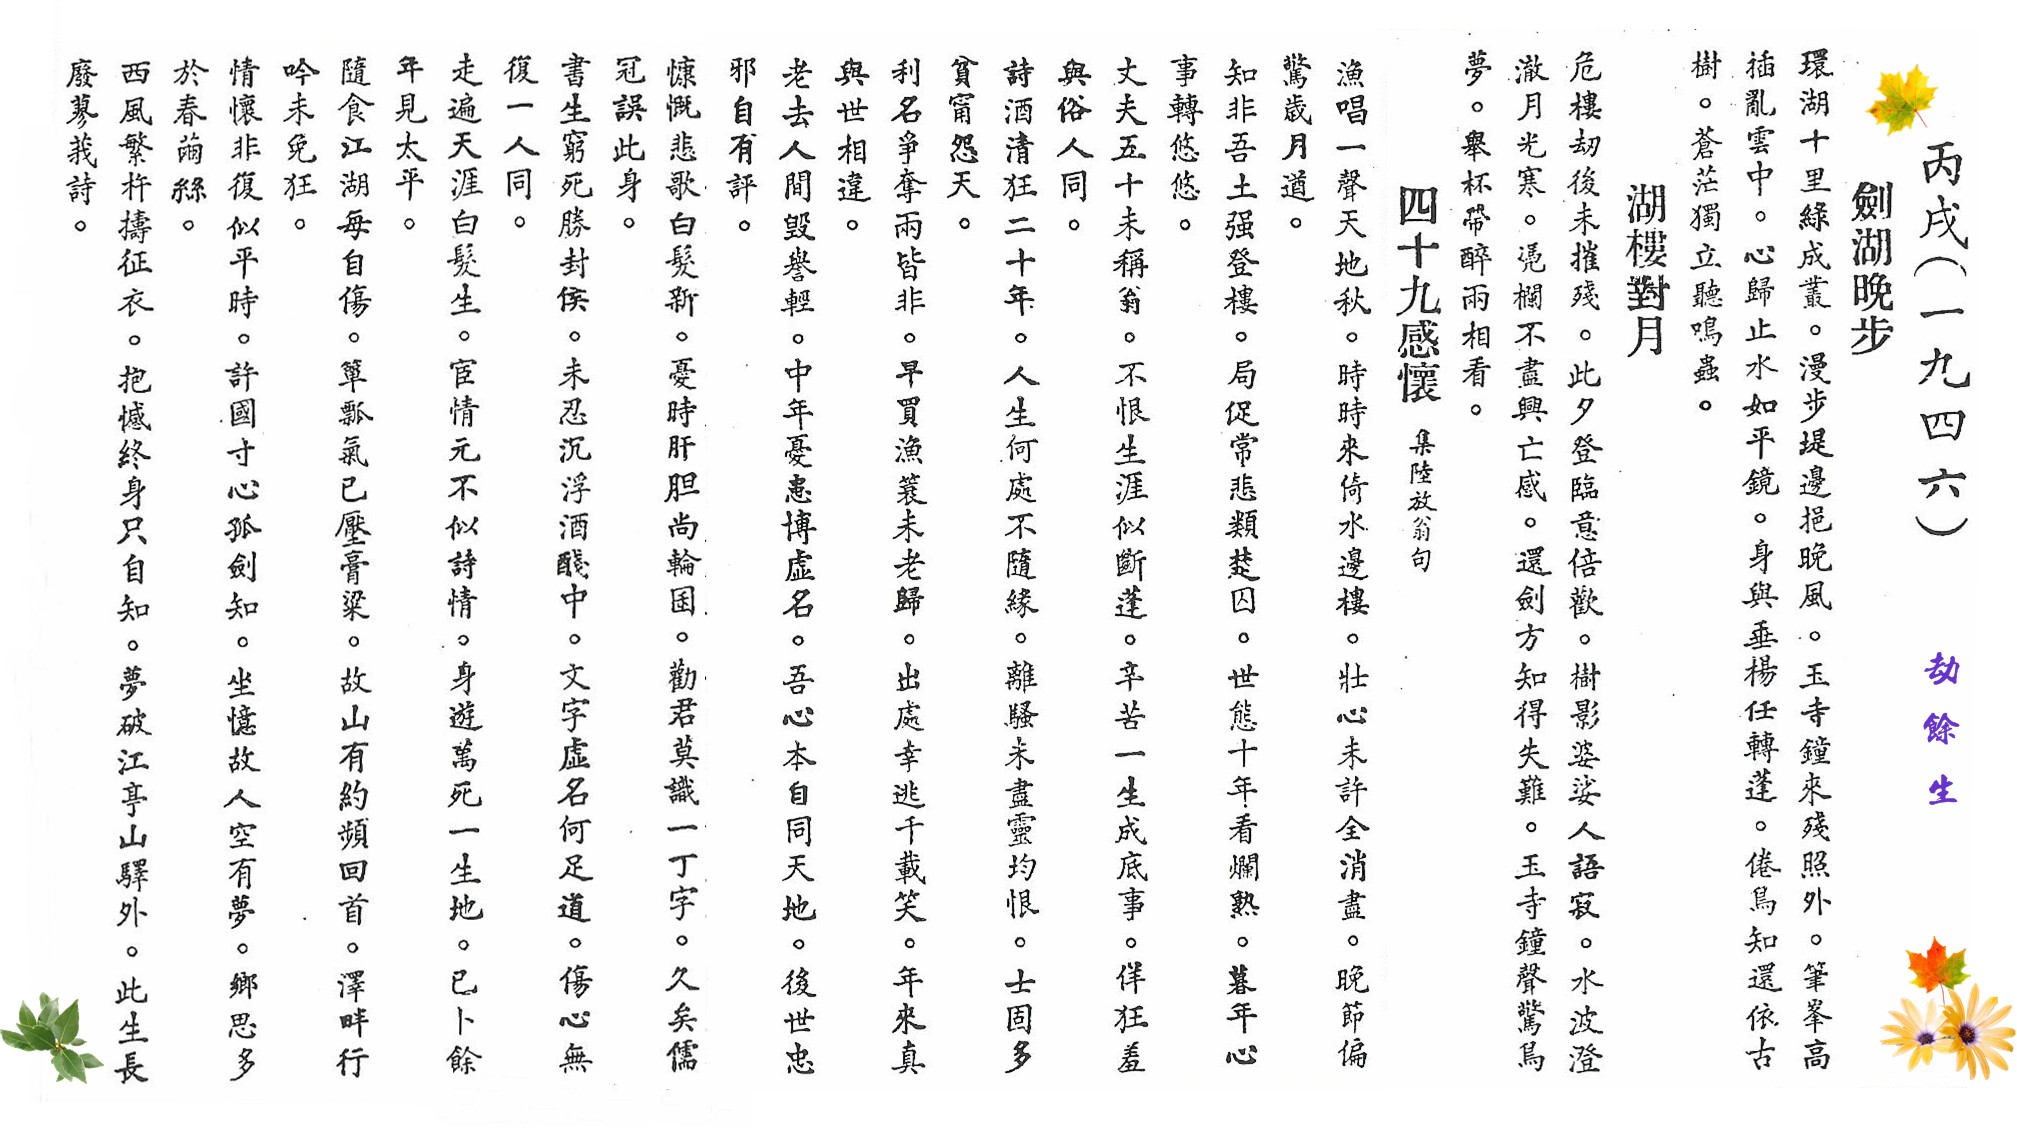 丙戌（一九四六）
劫餘生
劍湖晚步
環湖十里綠成叢。漫步堤邊挹晚風。玉寺鐘來殘照外。筆峯高
插亂雲中。心歸止水如平鏡。身與垂楊任轉蓬。倦鳥知還依古
樹。蒼茫獨立聽鳴蟲。
湖樓對月
危樓劫後未摧殘。此夕登臨意倍歡。樹影婆娑人語寂。水波澄
澈月光寒。凭欄不盡興亡感。還劍方知得失難。玉寺鐘聲驚鳥
夢。舉杯帶醉兩相看。
四十九感懷 集陸放翁句
漁唱一聲天地秋。時時來倚水邊樓。壯心未許全消盡。晚節偏
驚歲月遒。
知非吾土强登樓。局促常悲類楚囚。世態十年看爛熟。暮年心
事轉悠悠。
丈夫五十未稱翁。不恨生涯似斷蓬。辛苦一生成底事。佯狂羞
與俗人同。
詩酒清狂二十年。人生何處不隨緣。離騷未盡靈均恨。士固多
貧甯怨天。
利名爭奪兩皆非。早買漁簑未老歸。出處幸逃千載笑。年來真
與世相違。
老去人間毀譽輕。中年憂患博虛名。吾心本自同天地。後世忠
邪自有評。
慷慨悲歌白髮新。憂時肝胆尚輪囷。勸君莫識一丁字。久矣儒
冠誤此身。
書生窮死勝封侯。未忍沉浮酒醆中。文字虛名何足道。傷心無
復一人同。
走遍天涯白髮生。宦情元不似詩情。身遊萬死一生地。已卜餘
年見太平。
隨食江湖每自傷。簞瓢氣已壓膏粱。故山有約頻回首。澤畔行
吟未免狂。
情懷非復似平時。許國寸心孤劍知。坐憶故人空有夢。鄉思多
於春繭絲。
西風繁杵擣征衣。抱憾終身只自知。夢破江亭山驛外。此生長
廢蓼莪詩。